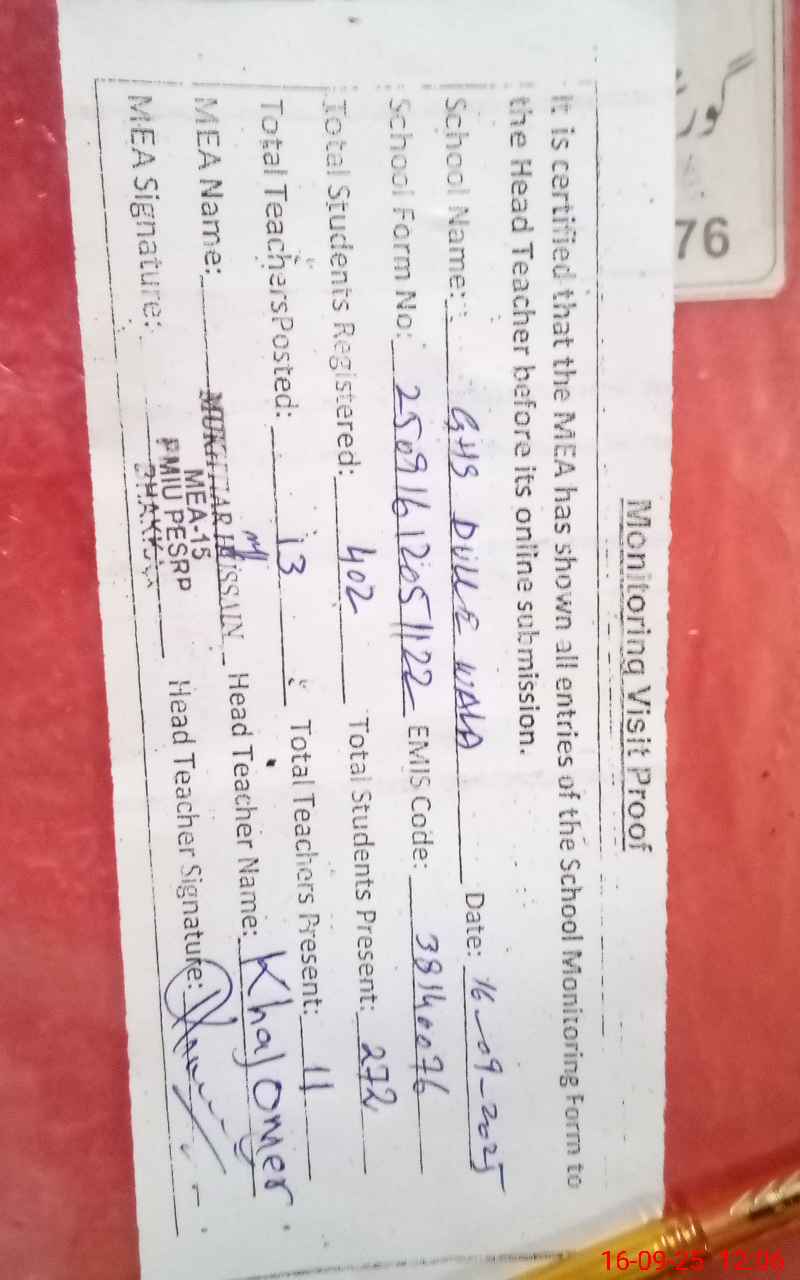 76
Monitoring Visit Proof
It is certified that the MEA has shown all entries of the School Monitoring Form to
the Head Teacher before its online submission.
School Name: GHS DULLE WALA Date: 16-09-2025
School Form No: 25091612051122 EMIS Code: 38140076
Total Students Registered: 402 Total Students Present: 272
Total Teachers Posted: 13 Total Teachers Present: 11
MEA Name: MUKHTAR HUSSAIN Head Teacher Name: Khajomer
MEA-15
PMIU PESRP
MEA Signature: Head Teacher Signature:
16-09-25 12:06